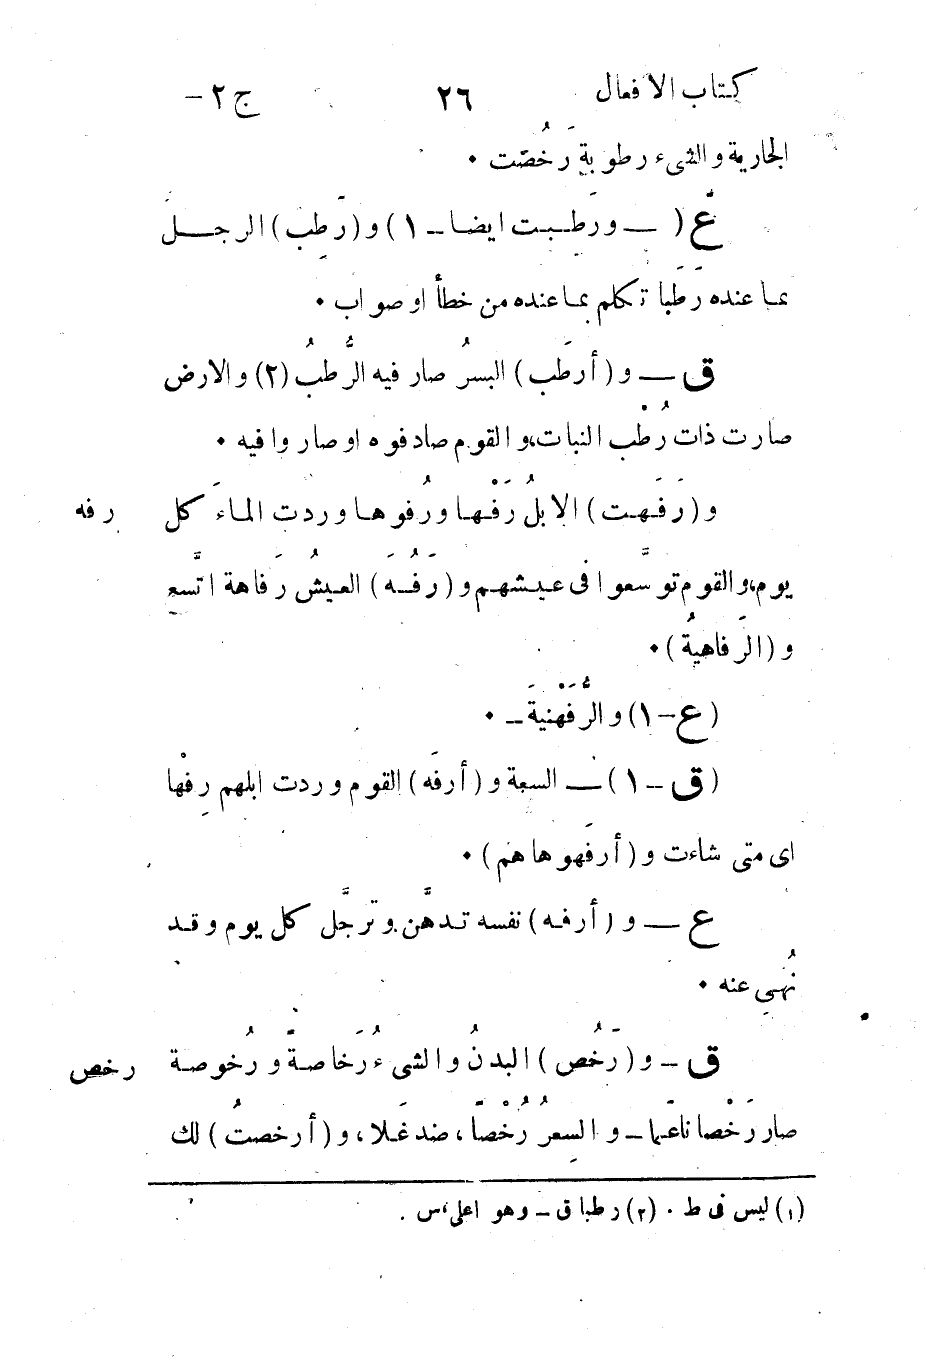 كتاب الافعال ٢٦ ج ٢ –
الجارية والشىء رطوبةٍ رَخُصَت •
ع ( ـــ ورَطِبت ايضا – ١) و (رَطِب) الرجلَ
بما عنده رَطَبا تكلم بما عنده من خطأ او صواب •
ق ــ و (أرطَب) البسرُ صار فيه الرُّطبُ (٢) والارض
صارت ذات رُطْب النبات، والقوم صادفوه او صاروا فيه •
و (رَفَهَت) الابلُ رَفْها ورُفوها وردت الماءَ كل
يوم، والقوم توسَّعوا فى عيشهم و (رَفُهَ) العيشُ رَفاهة اتَّسع
و (الرَّفاهيةُ) •
(ع – ١) والرُّفَهْنيةَ – •
(ق – ١) ــ السعة و (أرفَه) القوم وردت ابلهم رِفْها
اى متى شاءت و (أرفَهوها هم) •
ع ــ و (أرفه) نفسه تدهَّن وترجَّل كل يوم وقد
نُهِى عنه •
ق – و (رَخُص) البدنُ والشىءُ رَخاصةً ورُخوصة
صار رَخْصا ناعمًا – والسعرُ رُخْصًا، ضد غَلا، و (أرخصتُ) لك
رفه
رخص
(١) ليس فى ط • (٢) رطبا ق – وهو اعلى، س .